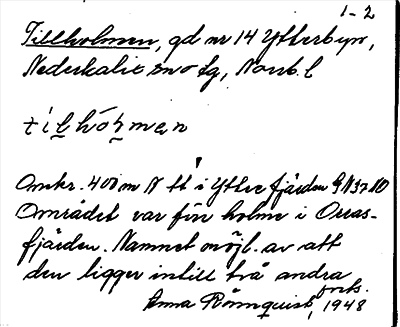 1-2
Tillholmen, gd nr 14 Ytterbyn,
Nederkalix sn o fg, Norrb. l
t i l h ó l m a n
Omkr. 400 m N tt i Ytterfjärden 9 N37 10
Området var förr holme i Orras-
fjärden. Namnet möjl. av att
den ligger intill två andra
forts.
Anna Rönnquist, 1948